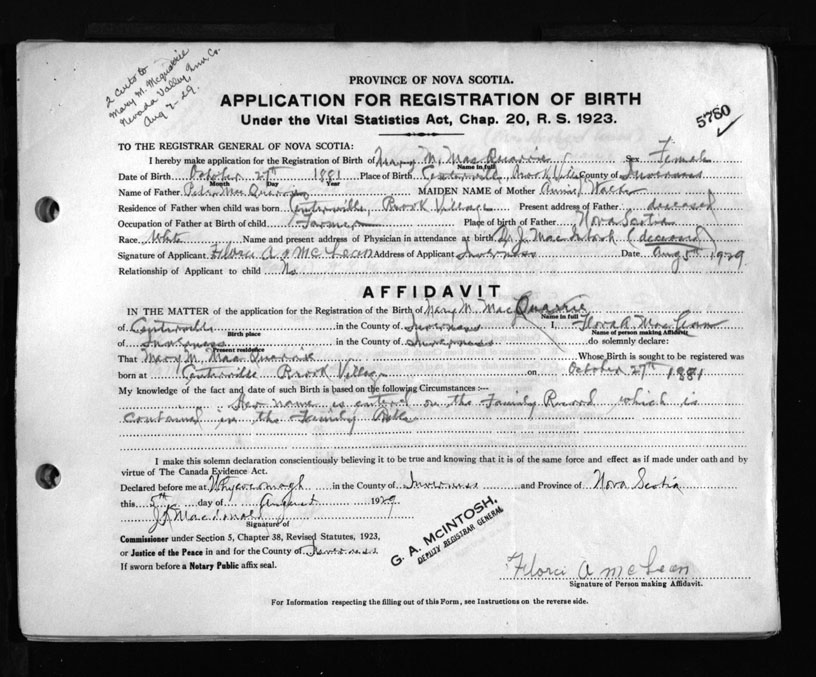 2 certs to
Mary M. Mcquarrie
Nevada Valley, Inv. Co.
Aug 7-29.
PROVINCE OF NOVA SCOTIA.
APPLICATION FOR REGISTRATION OF BIRTH
Under the Vital Statistics Act, Chap. 20, R. S. 1923.
5780
TO THE REGISTRAR GENERAL OF NOVA SCOTIA:
I hereby make application for the Registration of Birth of Mary M. MacQuarrie Sex Female
Name in full
Date of Birth October 27th 1881 Place of Birth Centerville, Brook Village County of Inverness
Month Day Year
Name of Father Peter MacQuarrie MAIDEN NAME of Mother Annie Walker
Residence of Father when child was born Centerville, Brook Village Present address of Father deceased
Occupation of Father at Birth of child Farmer Place of birth of Father Nova Scotia
Race White Name and present address of Physician in attendance at birth Dr. J. MacIntosh (deceased)
Signature of Applicant Flora A McLean Address of Applicant Inverness Date Aug 5th 1929.
Relationship of Applicant to child No
AFFIDAVIT
IN THE MATTER of the application for the Registration of the Birth of Mary M. MacQuarrie
Name in full
of Centerville in the County of Inverness I, Flora A MacLean
Birth place Name of person making Affidavit
of Inverness in the County of Inverness do solemnly declare:
Present residence
That Mary M. MacQuarrie Whose Birth is sought to be registered was
born at Centerville Brook Village on October 27th 1881
My knowledge of the fact and date of such Birth is based on the following Circumstances:—
Her name is entered on the Family Record which is
contained in the Family Bible
I make this solemn declaration conscientiously believing it to be true and knowing that it is of the same force and effect as if made under oath and by
virtue of The Canada Evidence Act.
Declared before me at Whycocomagh in the County of Inverness and Province of Nova Scotia
this 5th day of August 1929
Macdonald
Signature of
Commissioner under Section 5, Chapter 38, Revised Statutes, 1923,
or Justice of the Peace in and for the County of Inverness
If sworn before a Notary Public affix seal.
G. A. McINTOSH,
DEPUTY REGISTRAR GENERAL
Flora A McLean
Signature of Person making Affidavit.
For Information respecting the filling out of this Form, see Instructions on the reverse side.